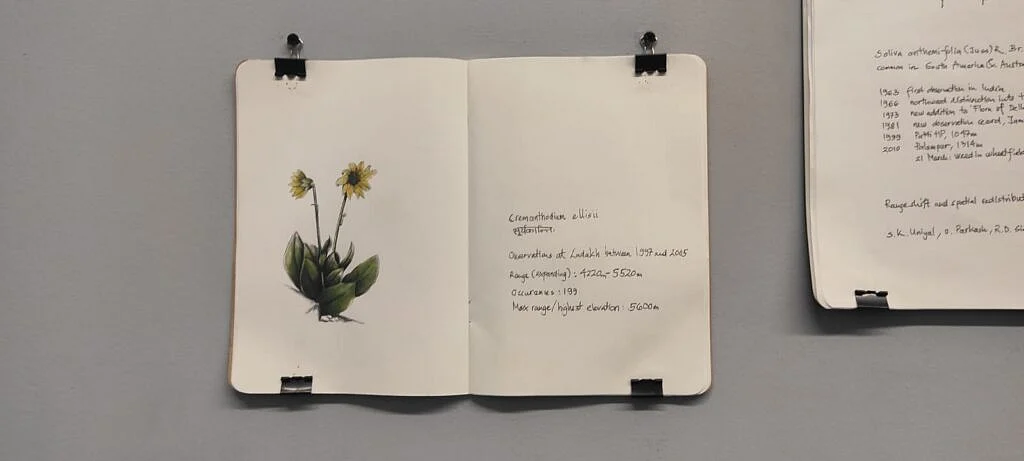 Cremanthodium ellisii
सूर्यकान्ति
Observations at Ladakh between 1997 and 2005
Range (expanding) : 4220m - 5520m
Occurances : 199
Max range/highest elevation : 5600m
Soliva anthemifolia (Juss) R. Br.
common in South America &
1963 first observation in India
1966 northward distribution into
1973 new addition to 'Flora of
1981 new observation record,
1999 HP, 1047m
2010 Palampur, 1314m
21 March : weed in wheat
Range shift and spatial
S.K. Uniyal, O. Parkash, R.D.